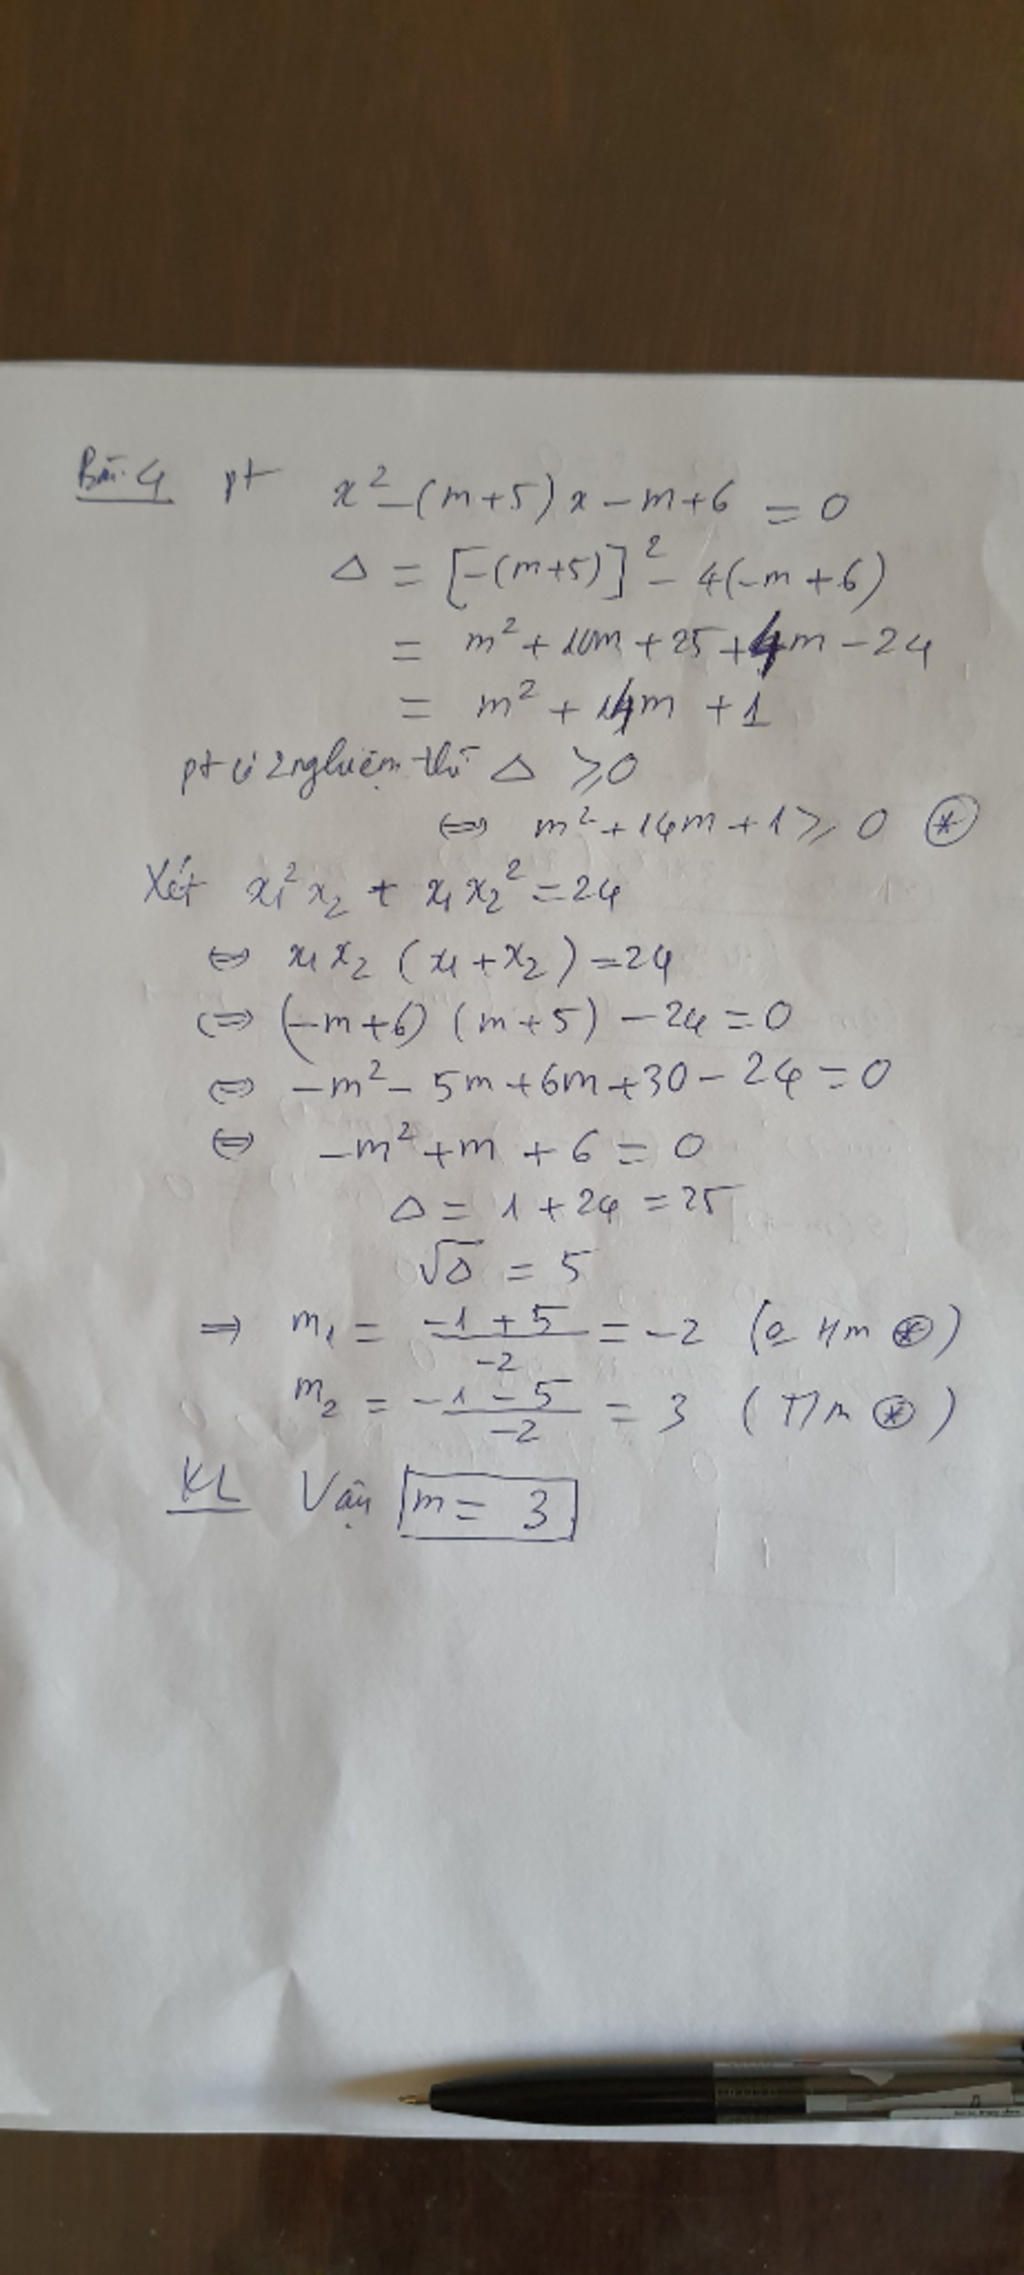 Bài 4 pt x² - (m+5)x - m+6 = 0
Δ = [-(m+5)]² - 4(-m+6)
= m² + 10m + 25 + 4m - 24
= m² + 14m + 1
pt có 2 nghiệm thì Δ ≥ 0
⇔ m² + 14m + 1 ≥ 0 (*)
Xét x₁²x₂ + x₁x₂² = 24
⇔ x₁x₂(x₁+x₂) = 24
⇔ (-m+6)(m+5) - 24 = 0
⇔ -m² - 5m + 6m + 30 - 24 = 0
⇔ -m² + m + 6 = 0
Δ = 1 + 24 = 25
√Δ = 5
⇒ m₁ = (-1 + 5)/(-2) = -2 (o t/m (*))
m₂ = (-1 - 5)/(-2) = 3 (T/m (*))
KL Vậy m = 3